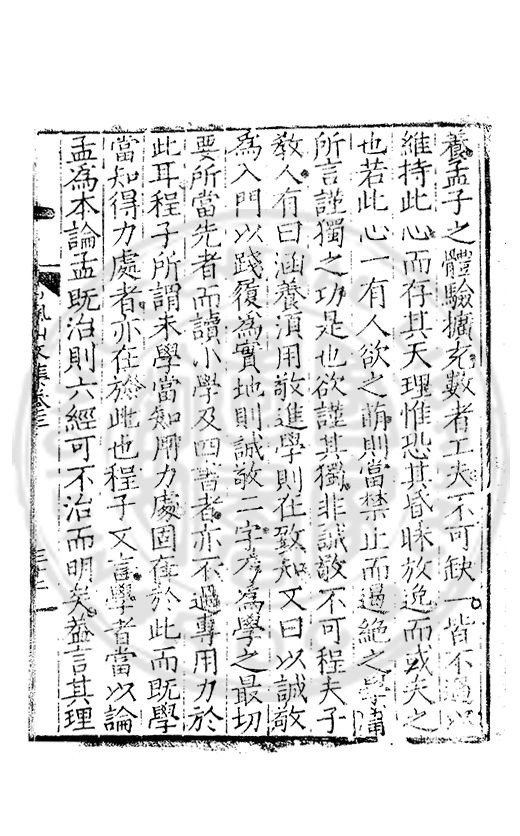 養孟子之體驗擴充數者工夫不可缺一皆不過以
維持此心而存其天理惟恐其昏昧放逸而或失之
也若此心一有人欲之萌則當禁止而遏絶之學庸
所言謹獨之功是也欲謹其獨非誠敬不可程夫子
敎人有曰涵養須用敬進學則在致知又曰以誠敬
為入門以踐履為實地則誠敬二字爲學之最切
要所當先者而讀小學及四書者亦不過專用力於
此耳程子所謂未學當知用力處固在於此而既學
當知得力處者亦在於此也程子又言學者當以論
孟為本論孟既治則六經可不治而明矣蓋言其理
山文集卷三